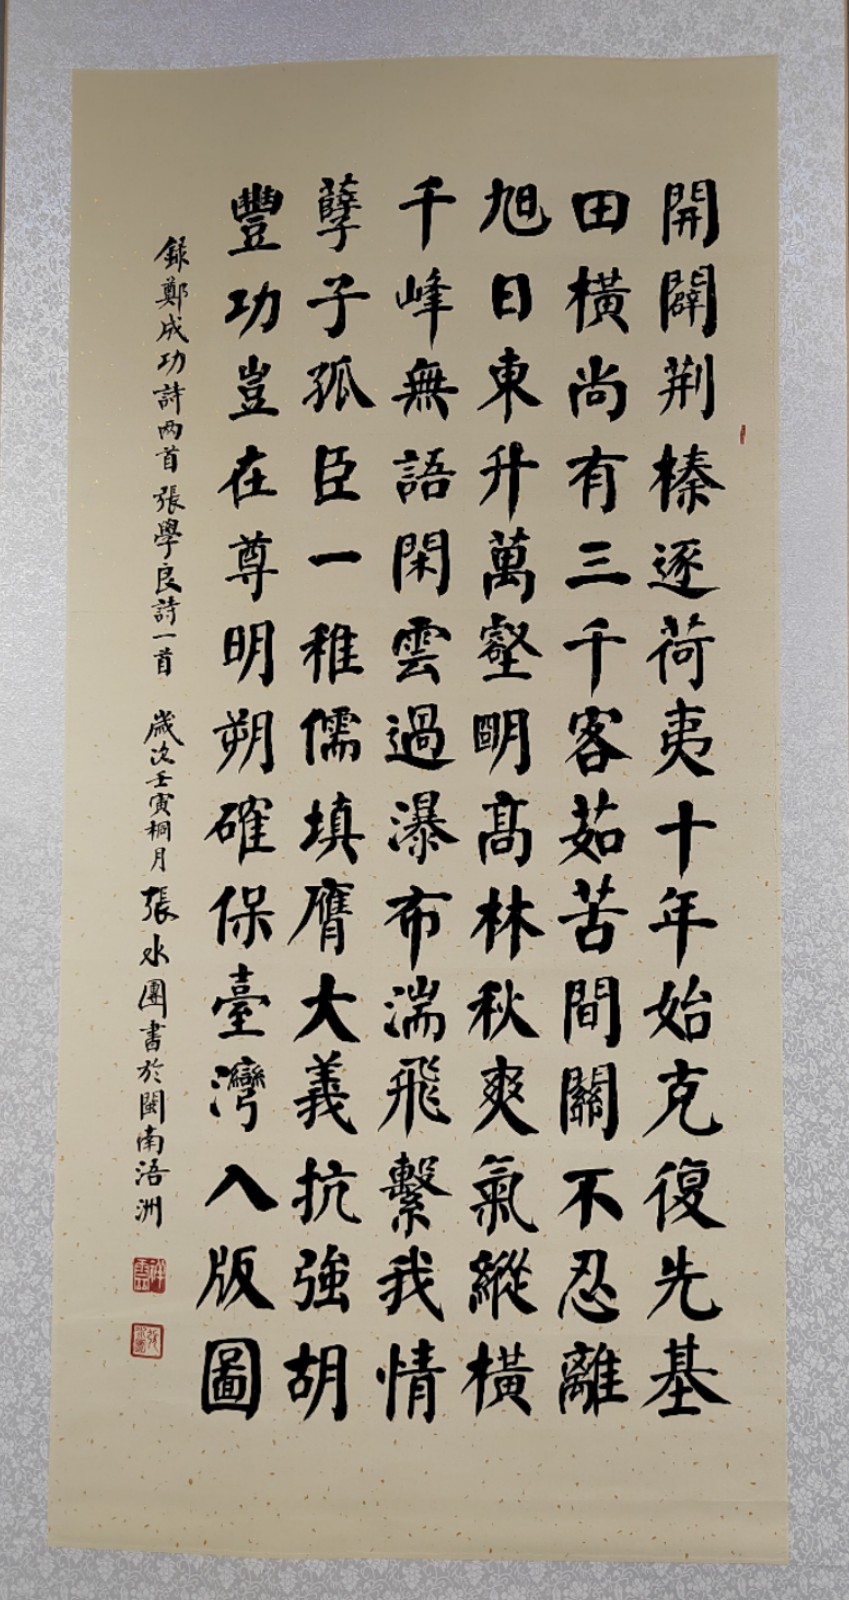 開闢荆榛逐荷夷十年始克復先基
田橫尚有三千客茹苦間關不忍離
旭日東升萬壑明高林秋爽氣縱橫
千峰無語閑雲過瀑布湍飛繫我情
孽子孤臣一稚儒填膺大義抗強胡
豐功豈在尊明朔確保臺灣入版圖
録鄭成功詩兩首 張學良詩一首 歲次壬寅桐月 張水團書於閩南浯洲